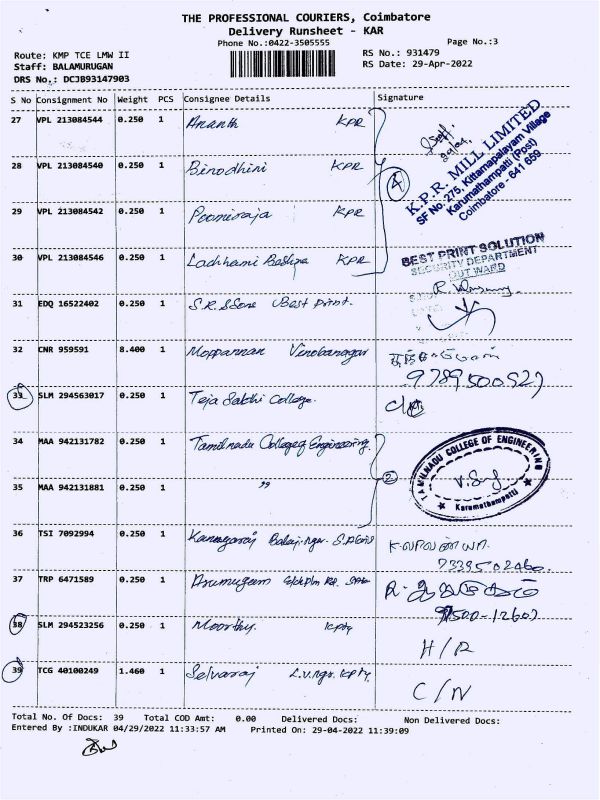 THE PROFESSIONAL COURIERS, Coimbatore
Delivery Runsheet - KAR
Phone No.:0422-3505555
Page No.:3
Route: KMP TCE LMW II
RS No.: 931479
Staff: BALAMURUGAN
RS Date: 29-Apr-2022
DRS No.: DCJB93147903
S No Consignment No Weight PCS Consignee Details Signature
27 VPL 213084544 0.250 1 Ananth KPR
28 VPL 213084540 0.250 1 Binodhini KPR
4
K.P.R. MILL LIMITED
SF No. 275, Kittampalayam Village
Karumathampatti (Post)
Coimbatore - 641 659
29 VPL 213084542 0.250 1 KPR
30 VPL 213084546 0.250 1 KPR
BEST PRINT SOLUTION
SECURITY DEPARTMENT
OUT WARD
31 EDQ 16522402 0.250 1 Best Print.
32 CNR 959591 8.400 1 Moppannan Vinobanagar
33 SLM 294563017 0.250 1 Teja Sakthi College.
34 MAA 942131782 0.250 1 Tamilnadu College of Engineering.
2
TAMILNADU COLLEGE OF ENGINEERING
Karumathampatti
35 MAA 942131881 0.250 1 "
36 TSI 7092994 0.250 1 Kanagaraj
7339502460.
37 TRP 6471589 0.250 1 Arumugam
38 SLM 294523256 0.250 1 Moorthy. Kpty H/R
39 TCG 40100249 1.460 1 Selvaraj L.V.ngr. Kpty. C/N
Total No. Of Docs: 39 Total COD Amt: 0.00 Delivered Docs: Non Delivered Docs:
Entered By :INDUKAR 04/29/2022 11:33:57 AM Printed On: 29-04-2022 11:39:09